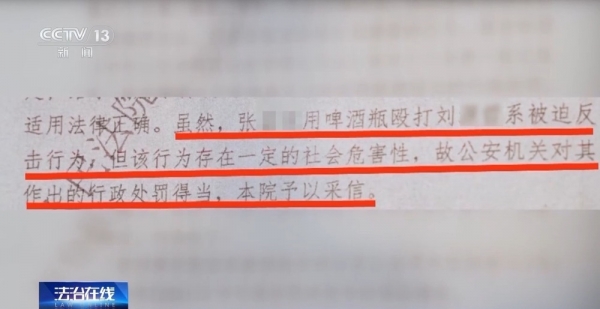 CCTV 13
新闻
适用法律正确。虽然，张 用啤酒瓶殴打刘 系被迫反
击行为，但该行为存在一定的社会危害性，故公安机关对其
作出的行政处罚得当，本院予以采信。
法治在线